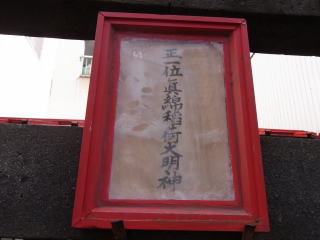 正一位眞綿稲荷大明神